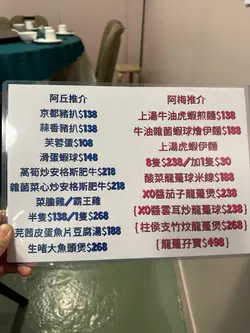 阿丘推介
京都豬扒$138
蒜香豬扒$138
芙蓉蛋$108
滑蛋蝦球$148
萬筍炒安格斯肥牛$218
雜菌菜心炒安格斯肥牛$218
菜膽雞/霸王雞
半隻$138/1隻$268
芫茜皮蛋魚片豆腐湯$188
生啫大魚頭煲$268
阿梅推介
上湯牛油虎蝦煎麵$138
牛油雜菌蝦球燴伊麵$188
上湯虎蝦伊麵
8隻$238/加1隻$30
酸菜龍躉球米線$188
XO醬茄子龍躉煲$238
{XO醬雲耳炒龍躉球$238}
{柱侯支竹炆龍躉煲$268}
{龍躉孖寶$498}